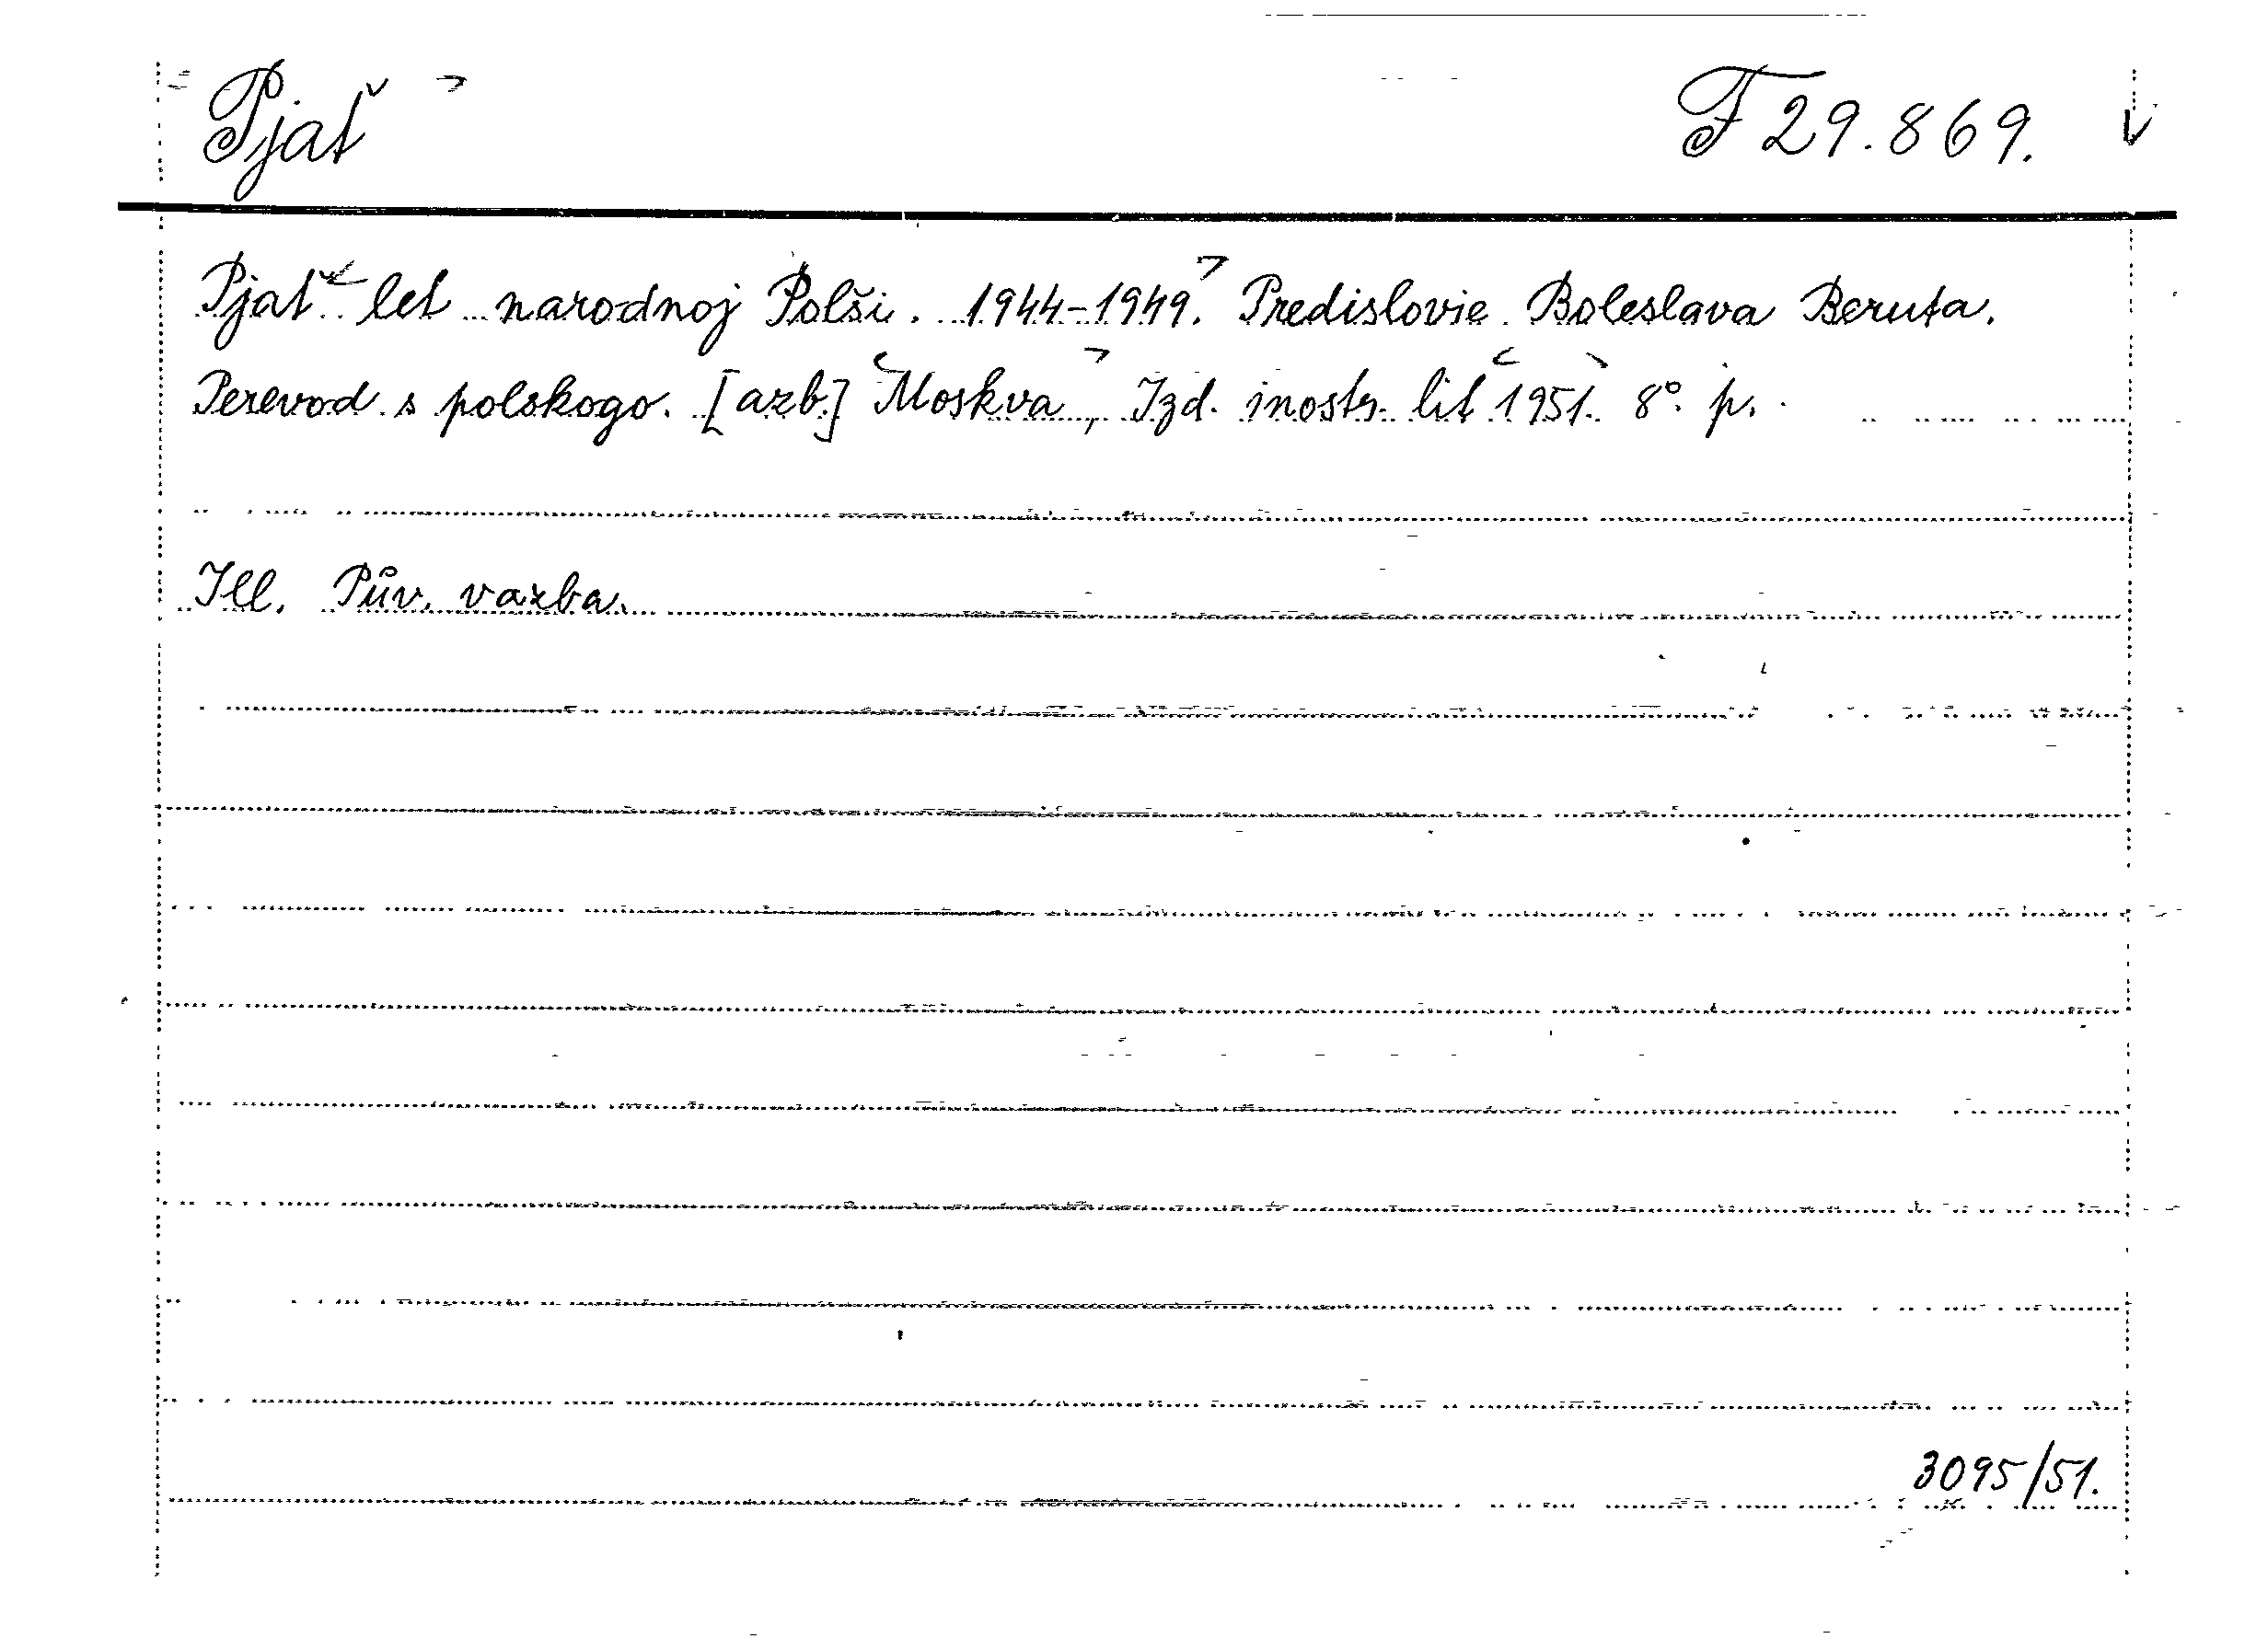 Pjať F 29.869.
Pjať let narodnoj Polši. 1944-1949. Predislovie Boleslava Beruta.
Perevod s polskogo. [azb.] Moskva, Izd. inostr. lit 1951. 8° p.
Ill. Pův. vazba.
3095/51.